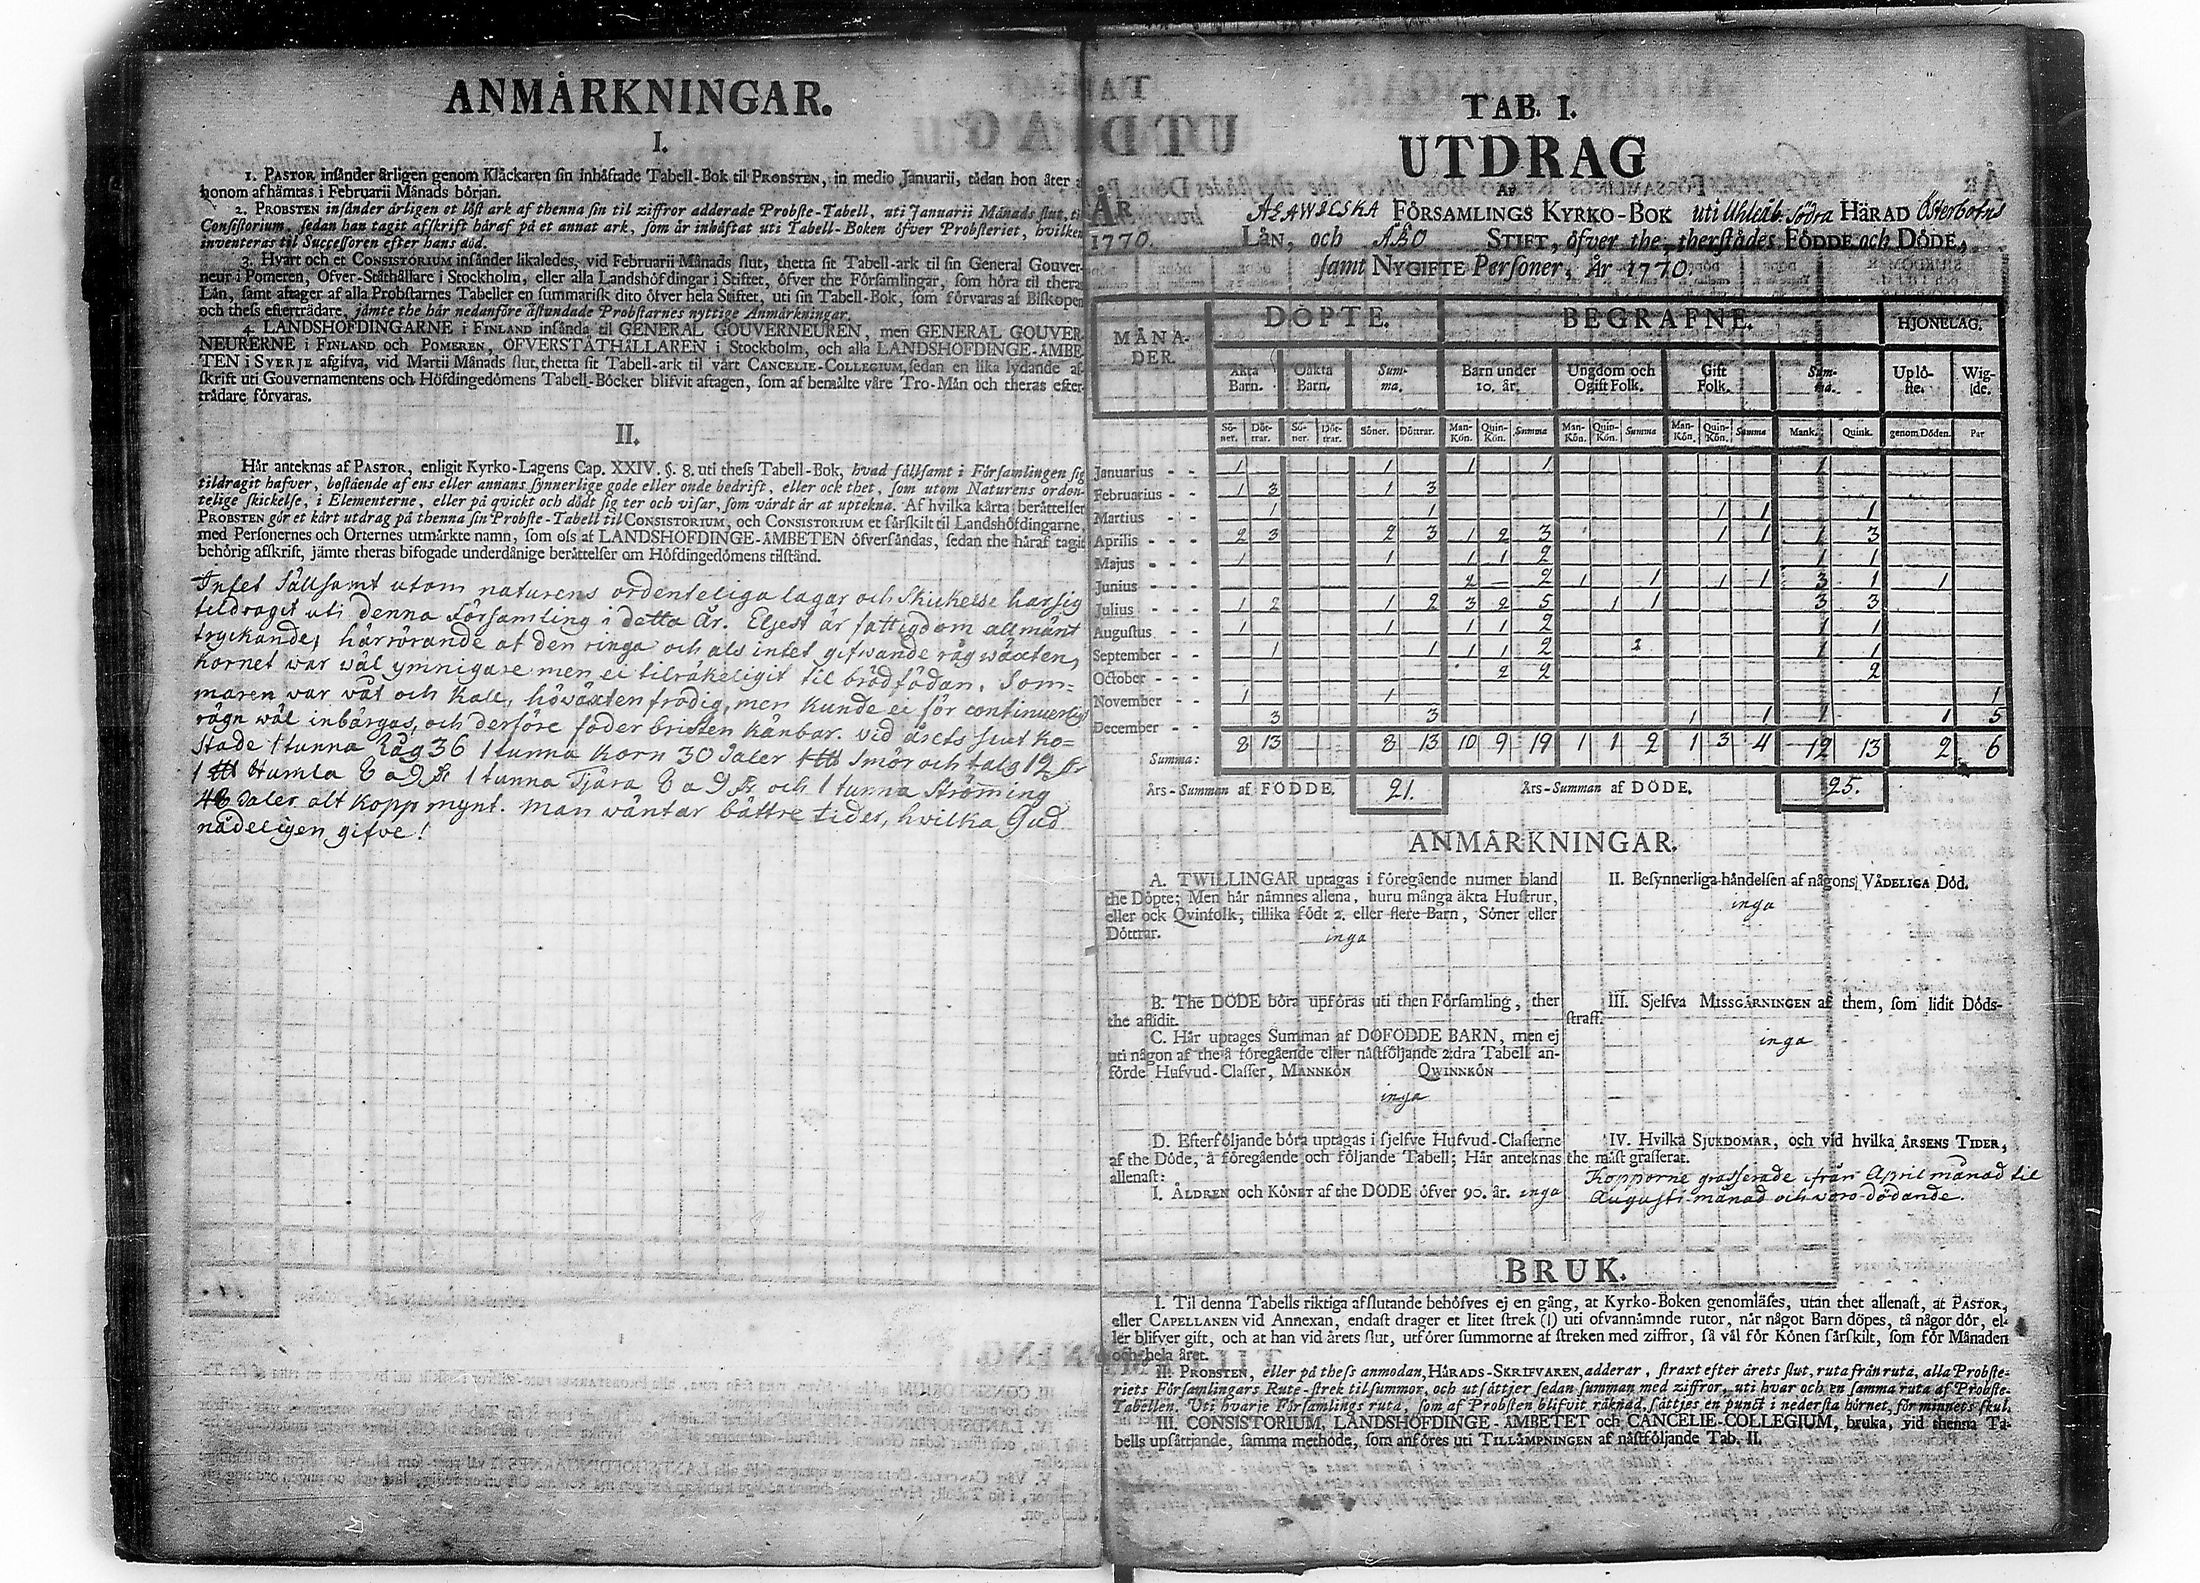 ANMÅRKNINGAR.
I.
1. PASTOR insånder årligen genom Klåckaren sin inhåftade Tabell-Bok til PROBSTEN, in medio Januarii, tådan hon åter
honom afhåmtas i Februarii Månads början.
2. PROBSTEN insånder årligen et löst ark af thenna sin til ziffror adderade Probste-Tabell, uti Januarii Månads slut, til
Consistorium, sedan han tagit afskrift håraf på et annat ark, som år inhåftat uti Tabell-Boken öfver Probsteriet, hvilken
inventeras til Successoren efter hans död.
3. Hvart och et CONSISTORIUM insånder likaledes, vid Februarii Månads slut, thetta sit Tabell-ark til sin General Gouver-
neur i Pomeren, Öfver-Ståthållare i Stockholm, eller alla Landshöfdingar i Stiftet, öfver the Församlingar, som höra til theras
Lån, samt aftager af alla Probstarnes Tabeller en summarisk dito öfver hela Stiftet, uti sin Tabell-Bok, som förvaras af Biskopen
och thess eftertrådare, jåmte the hår nedanföre åstundade Probstarnes nyttige Anmårkningar.
4. LANDSHÖFDINGARNE i FINLAND insånda til GENERAL GOUVERNEUREN, men GENERAL GOUVER-
NEURERNE i FINLAND och POMEREN, ÖFVERSTÅTHÅLLAREN i Stockholm, och alla LANDSHÖFDINGE-ÅMBE-
TEN i SVERJE afgifva, vid Martii Månads slut, thetta sit Tabell-ark til vårt CANCELIE-COLLEGIUM, sedan en lika lydande af-
skrift uti Gouvernamentens och Höfdingedömens Tabell-Böcker blifvit aftagen, som af bemålte våre Tro-Mån och theras efter-
trådare förvaras.
II.
Hår anteknas af PASTOR, enligit Kyrko-Lagens Cap. XXIV. §. 8. uti thess Tabell-Bok, hvad sållsamt i Församlingen sig
tildragit hafver, bestående af ens eller annans synnerlige gode eller onde bedrift, eller ock thet, som utom Naturens orden-
telige skickelse, i Elementerne, eller på qvickt och dödt sig ter och visar, som vårdt år at uptekna. Af hvilka kårta beråttelser
PROBSTEN gör et kårt utdrag på thenna sin Probste-Tabell til CONSISTORIUM, och CONSISTORIUM et sårskilt til Landshöfdingarne,
med Personernes och Orternes utmårkte namn, som oss af LANDSHÖFDINGE-ÅMBETEN öfversåndas, sedan the håraf tagit
behörig afskrift, jåmte theras bifogade underdånige beråttelser om Höfdingedömens tilstånd.
Intet Sällsamt utom naturens ordenteliga lagar och Skickelse har sig
tildragit uti denna Församling i detta År. Eljest är fattigdom allmänt
tryckande, härrörande af den ringa och als intet gifwande rågwäxten,
Kornet war wäl ymnigare men ei tilräkeligit til brödfödan. Som=
maren war våt och Kall, höwäxten frodig, men Kunde ei för continuerligt
rägn wäl inbärgas, och derföre foder bristen känbar. vid årets slut ko=
stade 1 tunna Råg 36 1 tunna Korn 30 Daler Smör och talg 12
1 Humla 8 a 9 1 tunna Tjära 8 a 9 och 1 tunna Strömming
48 daler alt Kopp mynt. Man wäntar bättre tider, hvilka Gud
nådeligen gifve!
TAB. I.
UTDRAG
AF
ÅR ALAWILSKA FÖRSAMLINGS KYRKO-BOK uti Uhleåb. Södra HÅRAD Österbotns
1770. LÅN, och ÅBO STIFT, öfver the therstådes FÖDDE och DÖDE,
samt NYGIFTE Personer, År 1770.
MÅNA-DER. DÖPTE. BEGRAFNE. HJONELAG.
Åkta Barn. Oåkta Barn. Sum-ma. Barn under 10. år. Ungdom och Ogift Folk. Gift Folk. Sum-ma. Uplö-ste. Wig-de.
Sö-ner. Döt-trar. Sö-ner. Döt-trar. Söner. Döttrar. Man-Kön. Quin-Kön. Summa Man-Kön. Quin-Kön. Summa Man-Kön. Quin-Kön. Summa Mank. Quink. genom Döden. Par
Januarius - - 1 1 1 1 1
Februarius - - 1 3 1 3
Martius - - 1 1 1 1 1
Aprilis - - - 2 3 2 3 1 2 3 1 1 1 3
Majus - - - 1 1 1 1 2 1 1
Junius - - - 2 - 2 1 1 1 1 3 1 1
Julius - - - 1 2 1 2 3 2 5 1 1 3 3
Augustus - - 1 1 1 1 2 1 1
September - - 1 1 1 1 2 2 1 1
October - - - 2 2 2
November - - 1 1 1
December - - - 3 3 1 1 1 1 5
Summa: 8 13 8 13 10 9 19 1 1 2 1 3 4 12 13 2 6
Års-Summan af FÖDDE. 21. Års-Summan af DÖDE. 25.
ANMÅRKNINGAR.
A. TWILLINGAR uptagas i föregående numer bland
the Döpte; Men hår nåmnes allena, huru många åkta Hustrur,
eller ock Qvinfolk, tillika födt 2. eller flere Barn, Söner eller
Döttrar. inga
B. The DÖDE böra upföras uti then Församling, ther
the aflidit.
C. Hår uptages Summan af DÖFÖDDE BARN, men ej
uti någon af the å föregående eller nåstföljande 2:dra Tabell an-
förde Hufvud-Classer, MANNKÖN QWINNKÖN
inga
D. Efterföljande böra uptagas i sjelfve Hufvud-Classerne
af the Döde, å föregående och följande Tabell; Hår anteknas
allenast:
I. ÅLDREN och KÖNET af the DÖDE öfver 90. år. inga
II. Besynnerliga håndelsen af någons VÅDELIGA Död.
inga
III. Sjelfva MISSGÅRNINGEN af them, som lidit Döds-
straff.
inga
IV. Hvilka SJUKDOMAR, och vid hvilka ÅRSENS TIDER,
the måst grasserat.
Kopporne grasserade ifrån April månad til
Augusti månad och woro dödande.
BRUK.
I. Til denna Tabells riktiga afslutande behöfves ej en gång, at Kyrko-Boken genomlåses, utan thet allenast, at PASTOR,
eller CAPELLANEN vid Annexan, endast drager et litet strek (I) uti ofvannåmnde rutor, når något Barn döpes, tå någor dör, el-
ler blifver gift, och at han vid årets slut, utförer summorne af streken med ziffror, så vål för Könen sårskilt, som för Månaden
och hela året.
II. PROBSTEN, eller på thess anmodan, HÅRADS-SKRIFVAREN, adderar, straxt efter årets slut, ruta från ruta, alla Probste-
riets Församlingars Rute-strek til summor, och utsåttjer sedan summan med ziffror, uti hvar och en samma ruta af Probste-
Tabellen. Uti hvarje Församlings ruta, som af Probsten blifvit råknad, såttjes en punct i nedersta hörnet, för minnets skul.
III. CONSISTORIUM, LANDSHÖFDINGE-ÅMBETET och CANCELIE-COLLEGIUM, bruka, vid thenna Ta-
bells upsåttjande, samma methode, som anföres uti TILLÅMPNINGEN af nåstföljande Tab. II.